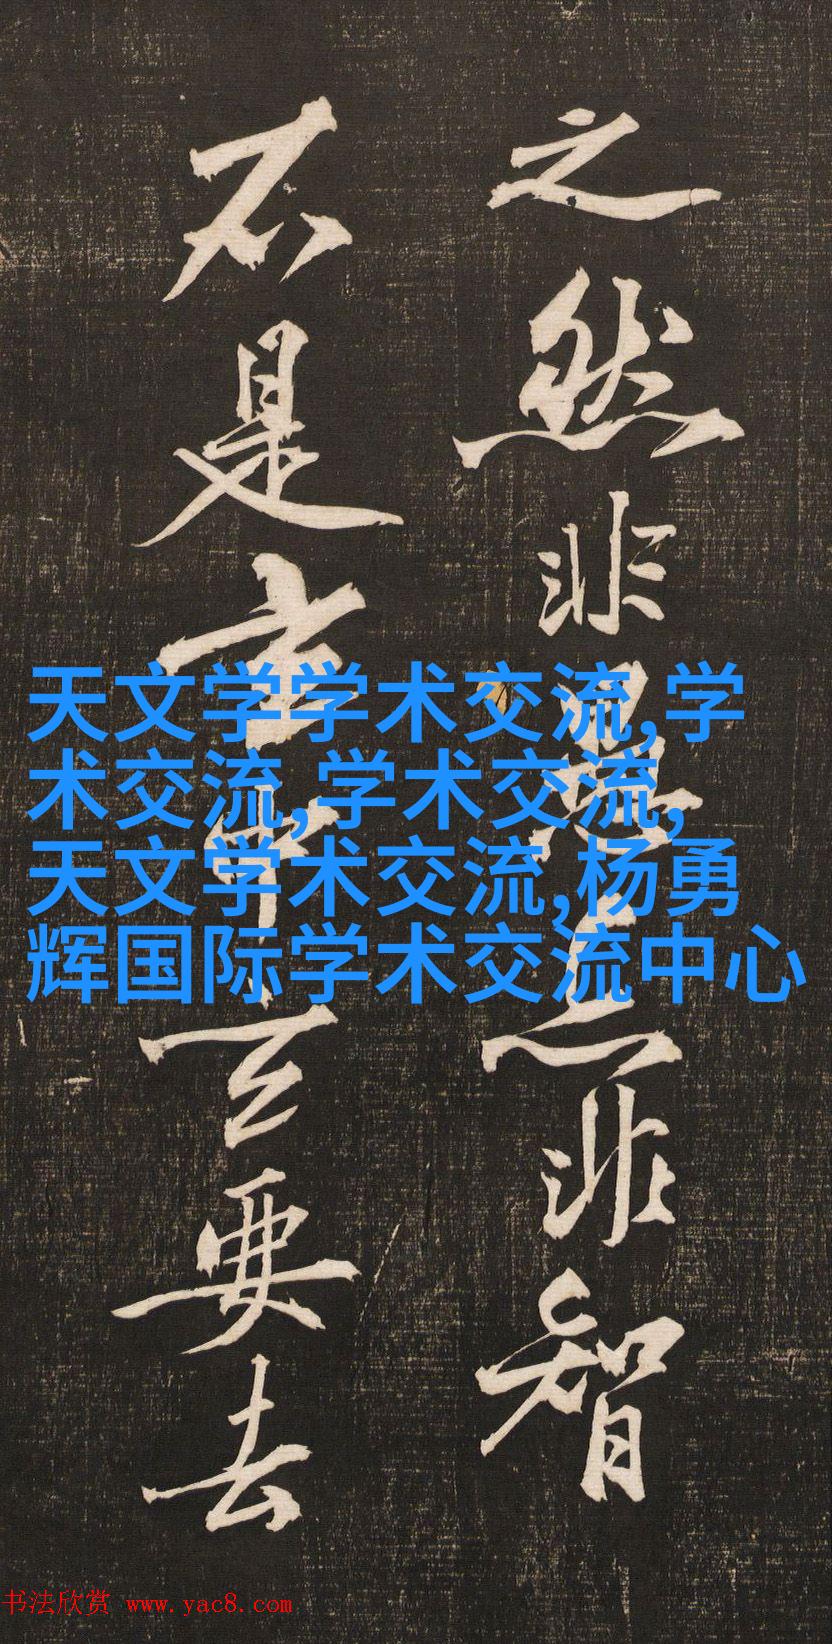 之然非愚非智
不是玄中玄要去
天文学学术交流,学
术交流,学术交流,
天文学术交流,杨勇
辉国际学术交流中心
书法欣赏 www.yac8.com